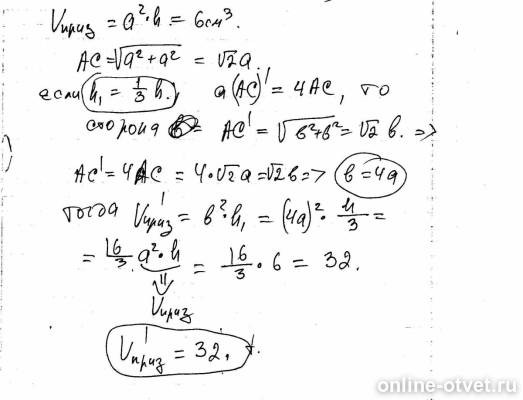 Vприз = a²·h = 6см³
AC = √a²+a² = √2a.
если h₁ = 1/3 h, a (AC)' = 4AC, то
сторона b = AC' = √b²+b² = √2 b. =>
AC' = 4AC = 4·√2a = √2b => b = 4a
тогда V'приз = b²·h₁ = (4a)²· h/3 =
= 16/3 a²·h = 16/3 · 6 = 32.
Vприз
V'приз = 32.
online-otvet.ru